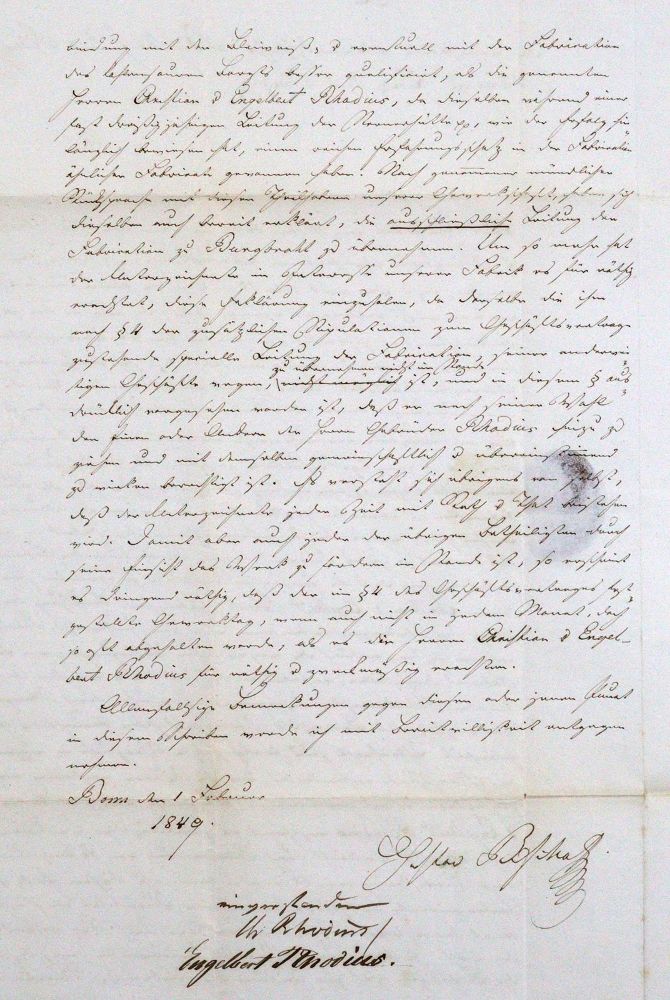 bindung mit dem Bleiweiß, & eventuell mit der Fabrication
des                          besser qualificirt, als die genannten
Herren Christian & Engelbert Rhodius, da dieselben während einer
fast dreißigjährigen Leitung der Sternerhütte pp, wie der Erfolg hin„
länglich bewiesen hat, einen reichen Erfahrungsschatz in der Fabrication
ähnlicher Fabricate gewonnen haben. Nach genommener mündlicher
Rücksprache mit diesen Theilhabern unserer Gewerkschaft, haben sich
dieselben auch bereit erklärt, die ausschließliche Leitung der
Fabrication zu Burgbrohl zu übernehmen. Um so mehr hat
der Unterzeichnete im Interesse unserer Fabrik es für nöthig
erachtet, diese Erklärung einzuholen, da derselbe die ihm
nach § 4 der zusätzlichen Stipulationen zum Geschäftsvertrage
zustehende specielle Leitung der Fabrication, seiner anderwei„
zu übernehmen nicht im Stande
tigen Geschäfte wegen, nicht möglich ist, und in diesem § aus„
drücklich vorgesehen worden ist, daß er nach seiner Wahl
den Einen oder Andern der Herrn Gebrüder Rhodius hinzu zu
ziehen und mit demselben gemeinschaftlich & übereinstimmend
zu wirken berechtigt ist. Es versteht sich übrigens von selbst,
daß der Unterzeichnete jeder Zeit mit Rath & That beistehen
wird. Damit aber auch jeder der übrigen Betheiligten durch
seine Einsicht das Werk zu fördern im Stande ist, so erscheint
es dringend nöthig, daß der im § 4 des Geschäftsvertrages fest„
gestellte Gewerktag, wenn auch nicht in jedem Monat, doch
so oft abgehalten werde, als es die Herren Christian & Engel-
bert Rhodius für nöthig & zweckmäßig erachten.
Allenfallsige Bemerkungen gegen diesen oder jenen Punct
in diesem Schreiben werde ich mit Bereitwilligkeit entgegen
nehmen.
Bonn den 1 Februar
1849.
Gustav Bischof
einverstanden
Chr Rhodius
Engelbert Rhodius.